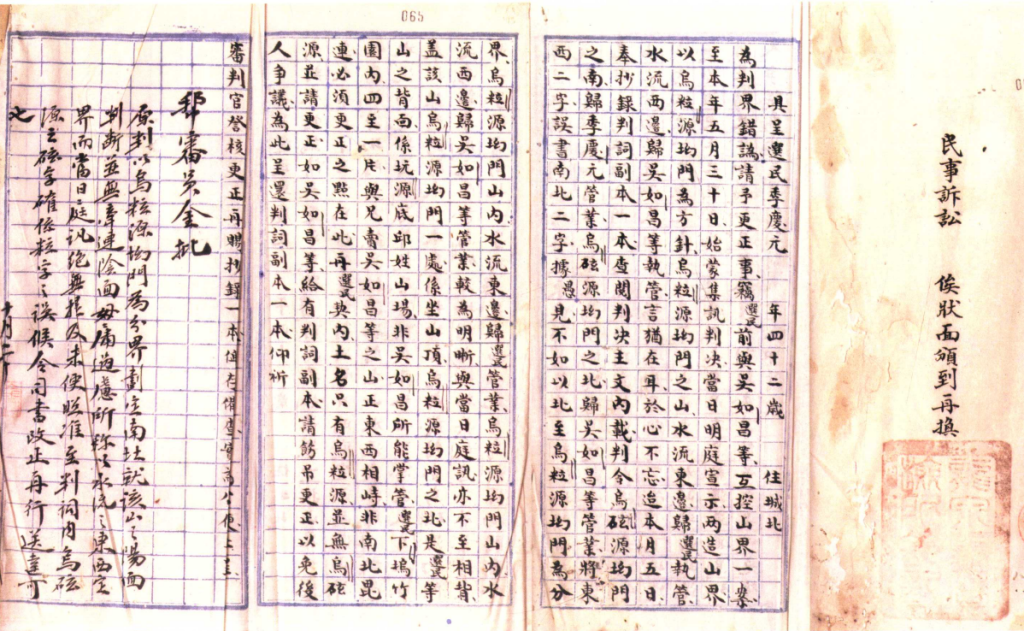 065
民事訴訟 俟狀面頒到再換
具呈選民季慶元 年四十二歲 住城北
為判界錯譌請予更正事竊選民前與吳如昌等互控山界一案
至本年五月三十日始蒙集訊判決當日明庭宣示兩造山界
以烏粒源坳門為方針烏粒源坳門之山水流東邊歸選民執管
水流西邊歸吳如昌等執管言猶在耳於心不忘迨本月五日
奉抄錄判詞副本一本查閱判決主文內載判令烏硋源坳門
之南歸季慶元管業烏硋源坳門之北歸吳如昌等管業將東
西二字誤書南北二字據愚見不如以北至烏粒源坳門為分
界烏粒源坳門山內水流東邊歸選民管業烏粒源坳門山內水
流西邊歸吳如昌等管業較為明晰與當日庭訊亦不至相背
蓋該山烏粒源坳門一處係坐山頂烏粒源坳門之北是選民等
山之背面係坑源底邱姓山場非吳如昌所能掌管選民下塢竹
圍內四至一片與兄賣吳如昌等之山正東西相峙非南北毘
連必須更正之點在此再選民契內土名只有烏粒源並無烏硋
源並請更正如吳如昌等給有判詞副本請飭吊更正以免後
人爭議為此呈還判詞副本一本仰祈
審判官詧核更正再賜抄錄一本俾存備查實為公便上呈
審員金批
原判以烏粒源坳門為分界劃定南北就該山之陽面
判斷並無牽連陰面毋庸過慮所稱之水流之東西定
界而當日之庭訊絕無提及未便照准至判詞內烏硋
源之硋字確係粒字之誤候令司書改正再行送達可
也